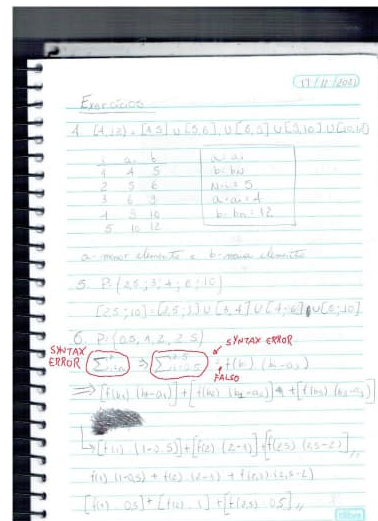 17/11/2021
Exercícios
4. [4,12) = [4,5] U [5,6] U [6,9] U [9,10] U [10,12]
i a b
1 4 5
2 5 6
3 6 9
4 9 10
5 10 12
a = ai
b = bN
N = i = 5
a = a1 = 4
b = bn = 12
a - menor elemento e b - maior elemento
5. P: (2,5; 3; 4; 6; 10)
[2,5; 10] = [2,5; 3] U [3, 4] U [4; 6] U [6; 10]
6. P: (0,5, 1, 2, 2,5)
SYNTAX ERROR
SYNTAX ERROR
FALSO
⇒ [f(b1) (b1-a1)] + [f(b2) (b2-a2)] + [f(b3) (b3-a3)]
[f(1) (1-0,5)] + [f(2) (2-1)] + [f(2,5) (2,5-2)]
f(1) (1-0,5) + f(2) (2-1) + f(2,5) (2,5-2)
[f(1) 0,5] + [f(2) 1] + [f(2,5) 0,5]